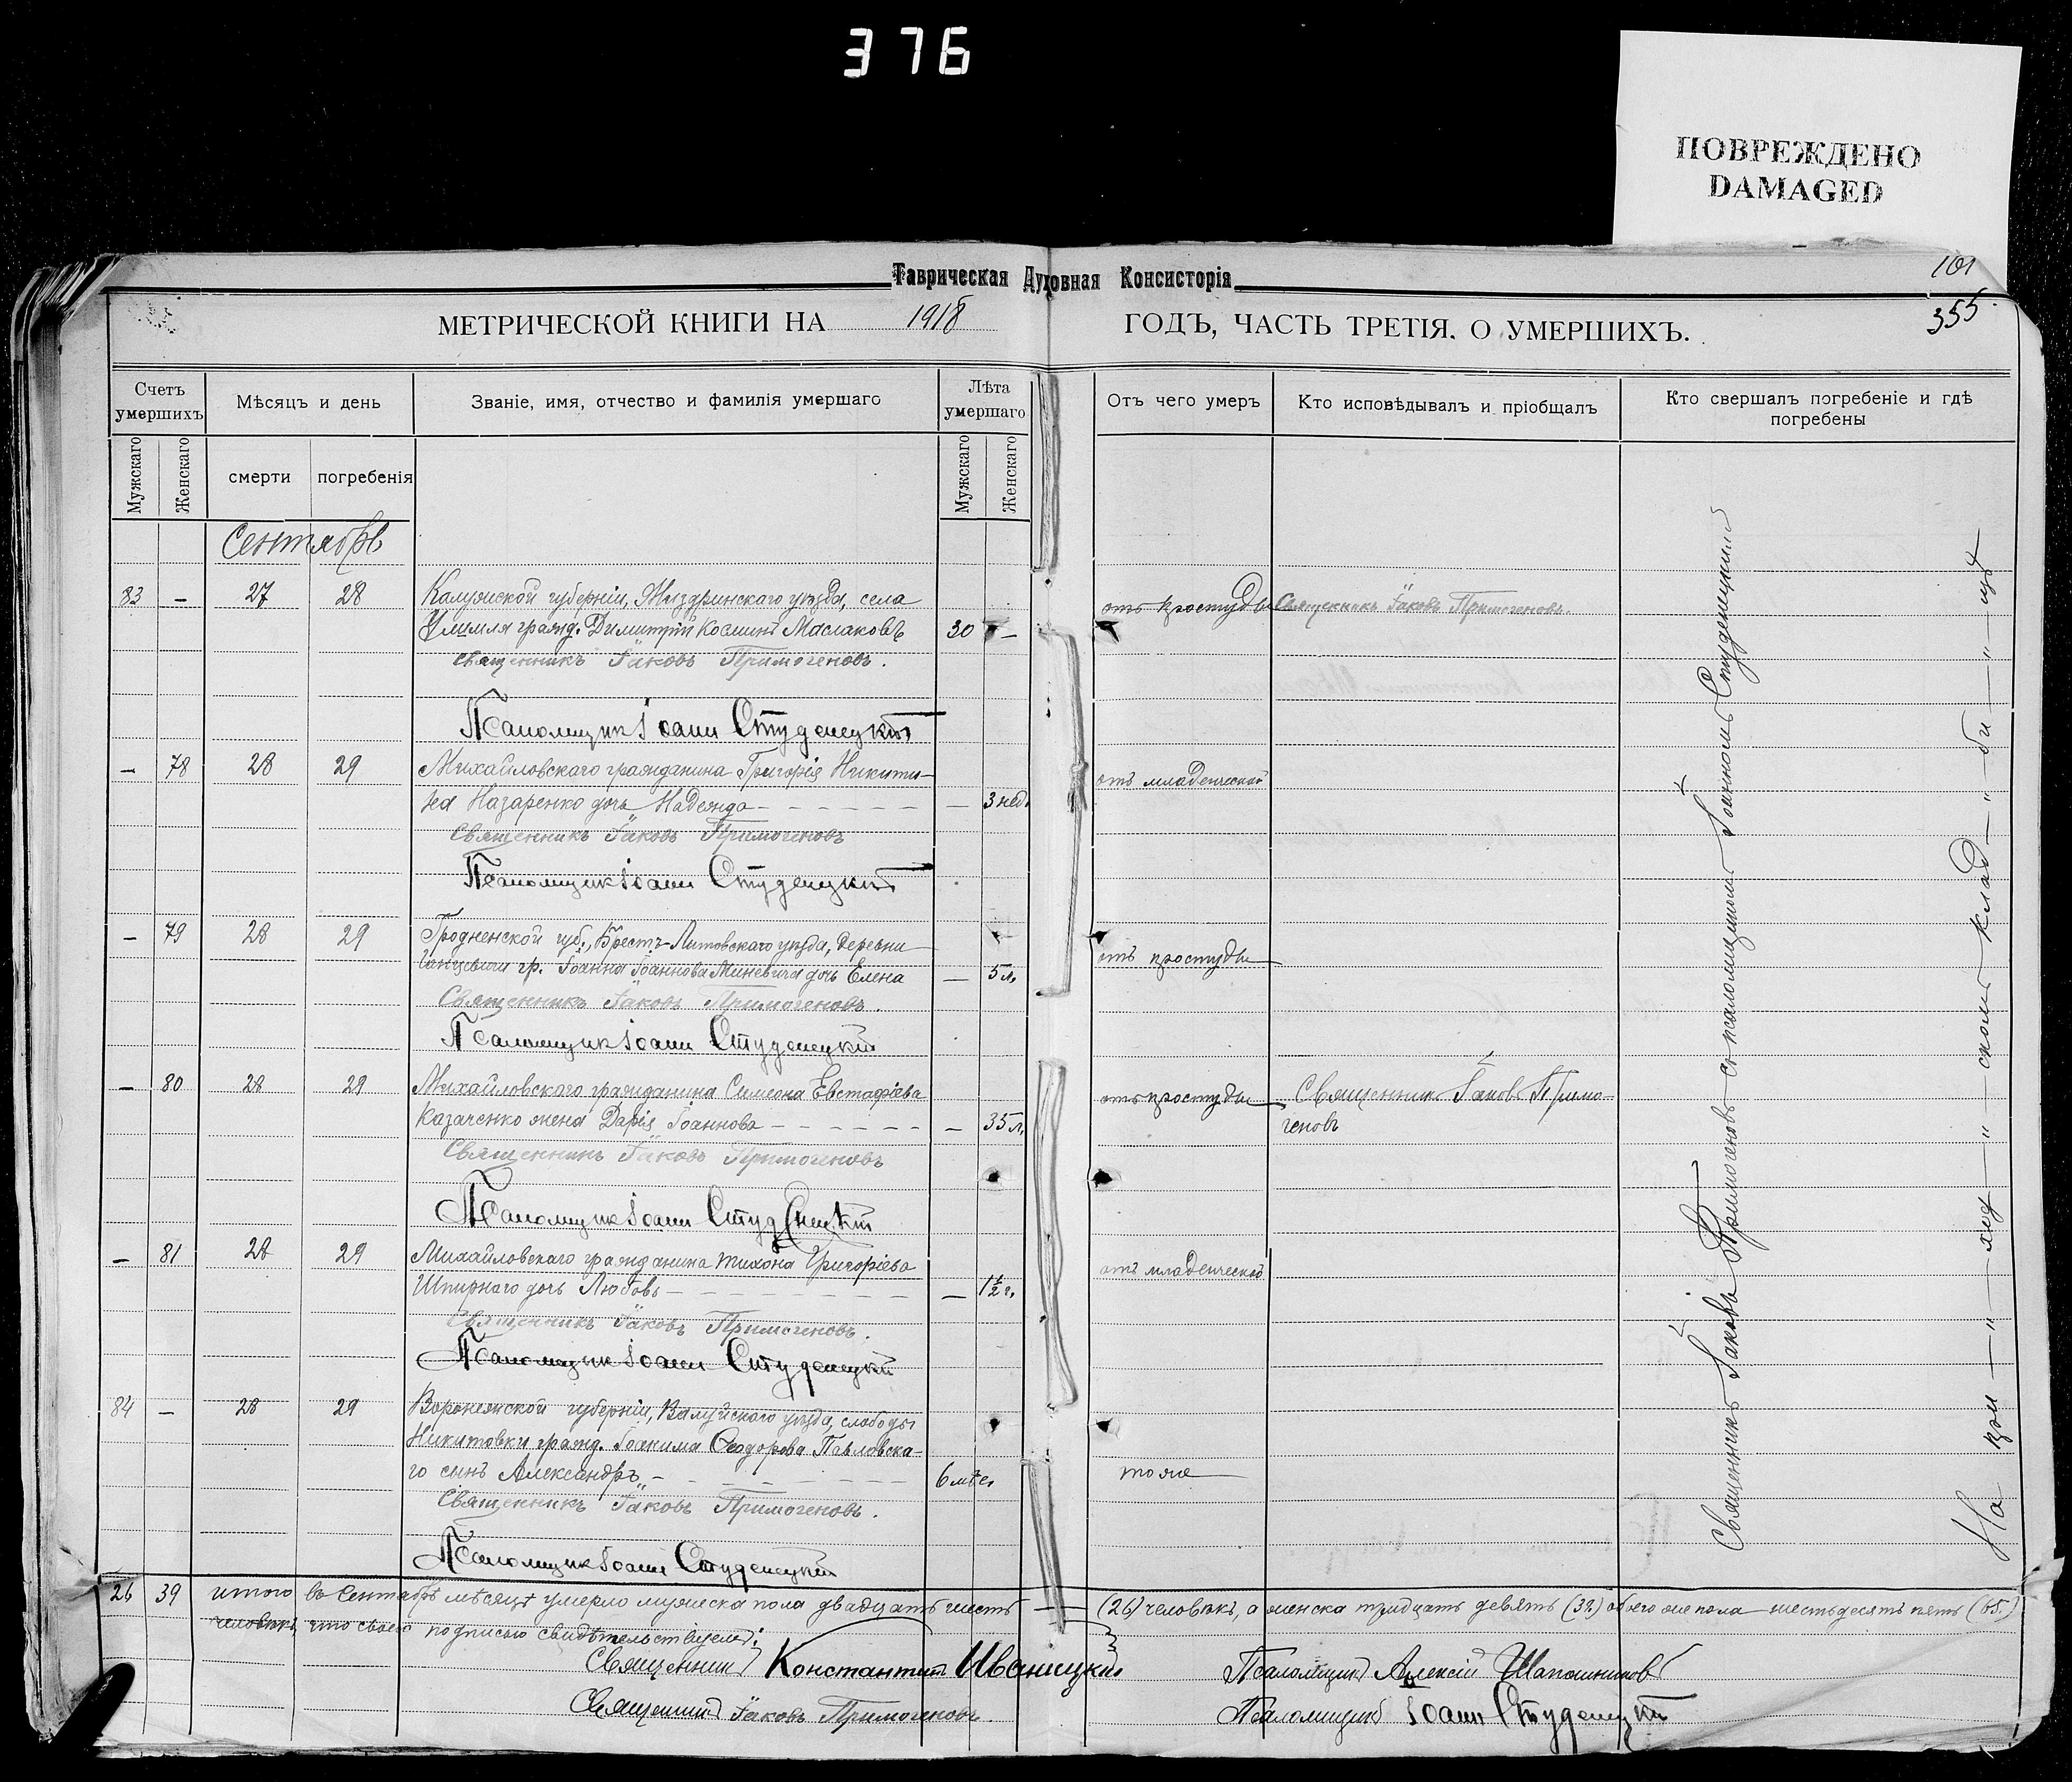 376
ПОВРЕЖДЕНО
DAMAGED
Таврическая Духовная Консисторія
101
355
МЕТРИЧЕСКОЙ КНИГИ НА 1918 ГОДЪ, ЧАСТЬ ТРЕТІЯ. О УМЕРШИХЪ.
Счетъ умершихъ
Мѣсяцъ и день
Званіе, имя, отчество и фамилія умершаго
Лѣта умершаго
Отъ чего умеръ
Кто исповѣдывалъ и пріобщалъ
Кто свершалъ погребеніе и гдѣ погребены
Мужскаго
Женскаго
смерти
погребенія
Мужскаго
Женскаго
Сентябрь
83 — 27 28 Калужской губерніи, Мыздринскаго уѣзда, села отъ простуды Священникъ Іаковъ Примогеновъ.
гражд. Димитрій Косминъ Маслаковъ 30 —
Священникъ Іаковъ Примогеновъ.
Псаломщик Іоанн Студенецкій
— 78 28 29 Михайловскаго гражданина Григорія Никити- отъ младенческой
на Назаренко дочь Надежда — 3 нед.
Священникъ Іаковъ Примогеновъ
Псаломщик Іоанн Студенецкій
— 79 28 29 Гродненской губ., Брестъ-Литовскаго уѣзда, деревни отъ простуды
гр. Іоанна Іоаннова Миневича дочь Елена — 5 л.
Священникъ Іаковъ Примогеновъ.
Псаломщик Іоанн Студенецкій
— 80 28 29 Михайловскаго гражданина Симеона Евстафіева отъ простуды Священникъ Іаковъ Примо-
Казаченко жена Дарія Іоаннова — 35 л. геновъ
Священникъ Іаковъ Примогеновъ
Псаломщик Іоанн Студенецкій
— 81 28 29 Михайловскаго гражданина Тихона Григоріева отъ младенческой
Шпирнаго дочь Любовь — 1½ г.
Священникъ Іаковъ Примогеновъ.
Псаломщик Іоанн Студенецкій
84 — 28 29 Воронежской губерніи, Валуйскаго уѣзда, слободы
Никитовки гражд. Іоакима Ѳеодорова Павловска-
го сынъ Александръ 6 мѣс. тоже
Священникъ Іаковъ Примогеновъ.
Псаломщик Іоанн Студенецкій
Священникъ Іаковъ Примогеновъ съ псаломщикомъ Іоанномъ Студенецкимъ
На при — " — ход — " — скомъ клад — " — би — " — щѣ
26 39 итого въ Сентябрѣ мѣсяцѣ умерло мужеска пола двадцать шесть — (26) человѣкъ, а женска тридцать девять (39) обоего же пола шестьдесятъ пять (65.)
человѣкъ, что своею подписью свидѣтельствуемъ:
Священникъ Константинъ Иваницкій Псаломщикъ Алексій Шапошниковъ
Священникъ Іаковъ Примогеновъ. Псаломщикъ Іоанн Студенецкій